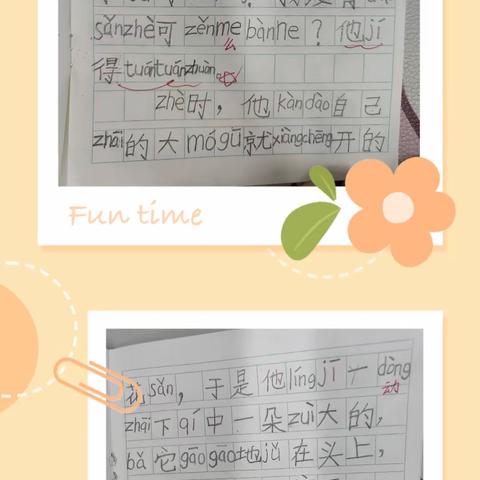 sǎn zhè 可 zěn me bàn ne ? 他 jí
么
得 tuán tuán zhuàn 。
zhè 时 , 他 kàn dào 自 己
zhāi 的 大 mó gū 就 xiàng chēng 开 的
Fun time
sǎn , 于 是 他 líng jī 一 dòng
动
zhāi 下 qí 中 一 朵 zuì 大 的 ,
bǎ 它 gāo gāo 地 jǔ 在 头 上 ,